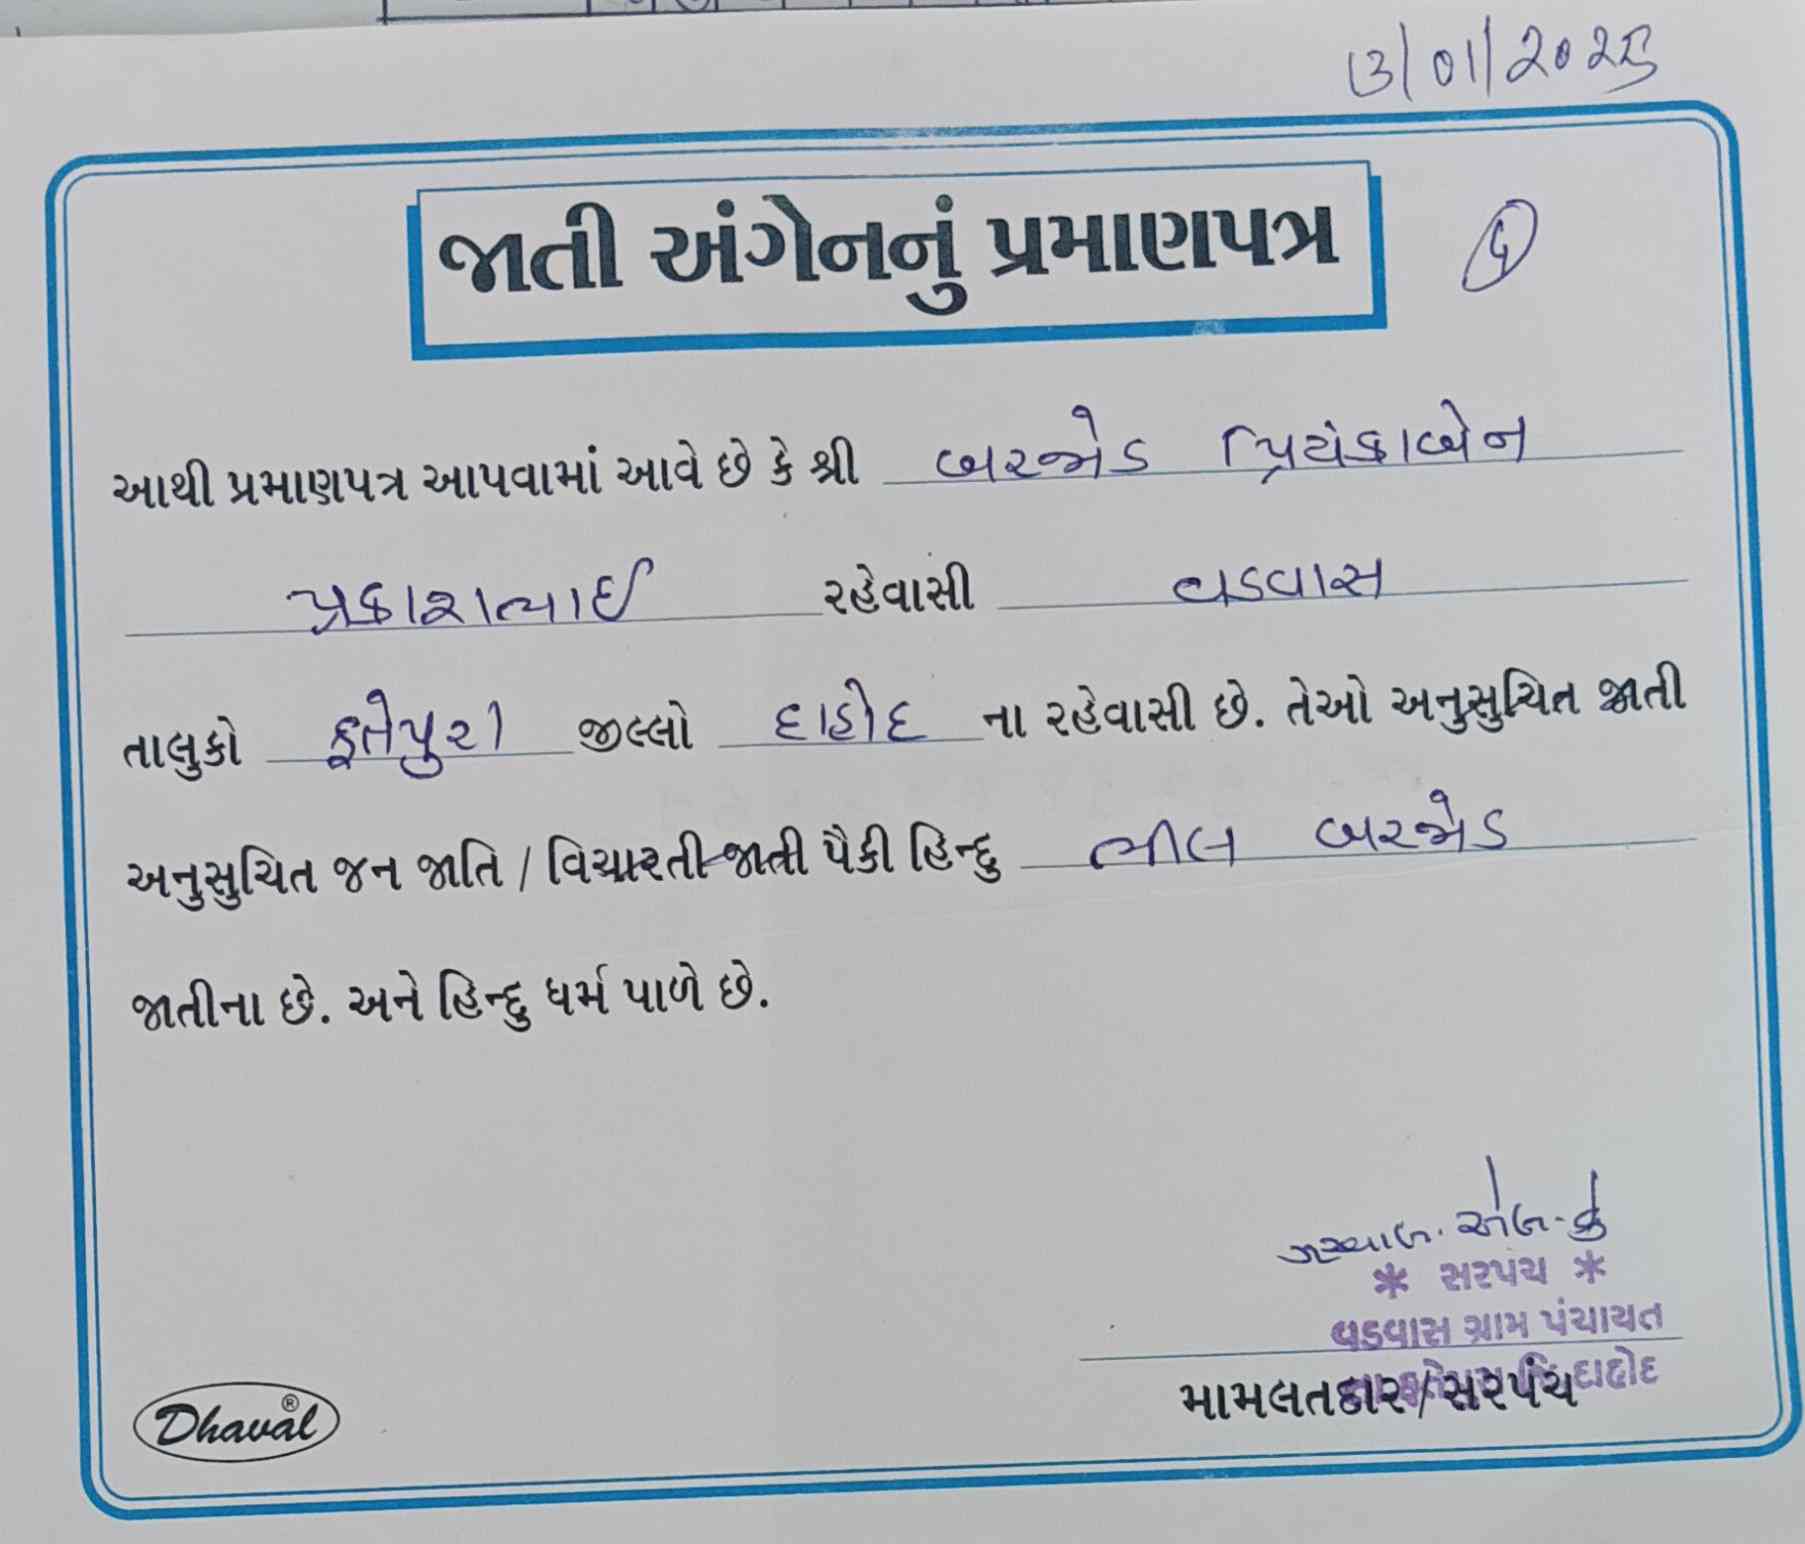 13/01/2025
જાતી અંગેનનું પ્રમાણપત્ર
આથી પ્રમાણપત્ર આપવામાં આવે છે કે શ્રી બરજોડ પ્રિયંકાબેન
પ્રકાશભાઈ રહેવાસી વડવાસ
તાલુકો ફતેપુરા જીલ્લો દાહોદ ના રહેવાસી છે. તેઓ અનુસુચિત જાતી
અનુસુચિત જન જાતિ / વિચારતી જાતી પૈકી હિન્દુ ભીલ બરજોડ
જાતીના છે. અને હિન્દુ ધર્મ પાળે છે.
* સરપંચ *
વડવાસ ગ્રામ પંચાયત
દાહોદ
મામલતદાર/સરપંચ
Dhaval®